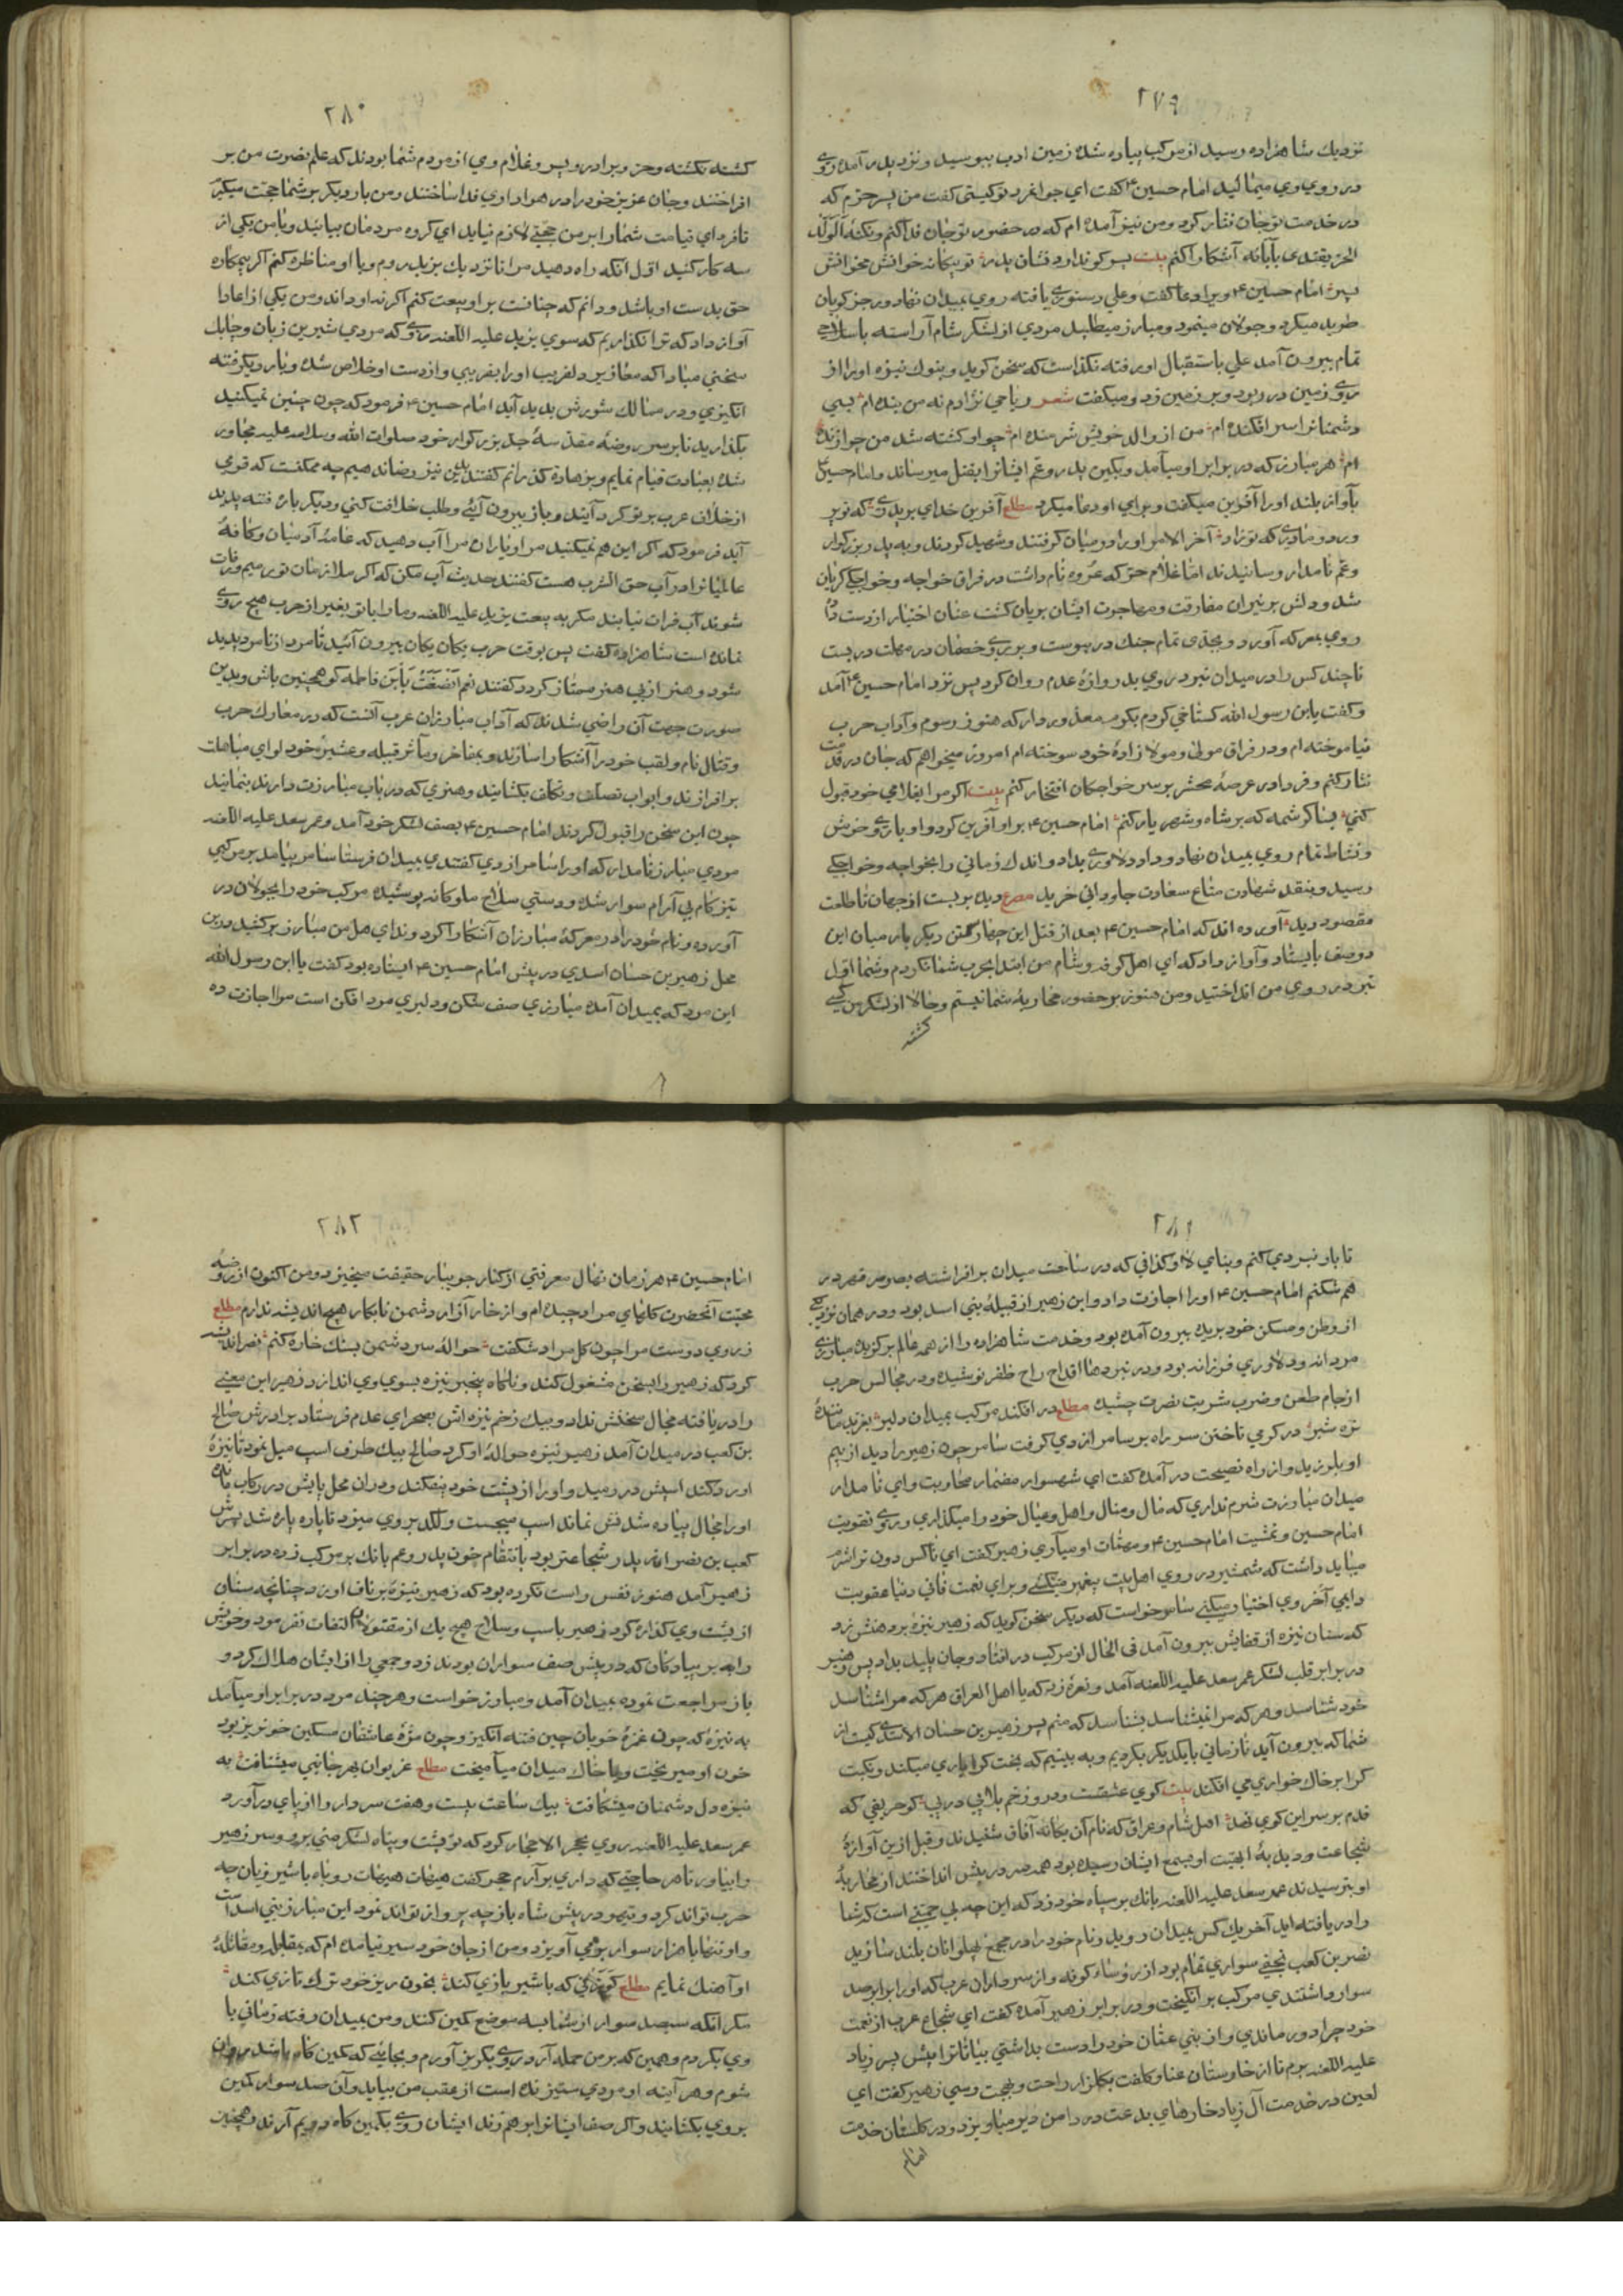 ۲۷۹
نزدیك شاهزاده رسید از مركب پیاده شده زمین ادب ببوسید ونزد پدر آمده روی
در روی وی میمالید امام حسین ۴ گفت ای جوانمرد تو كیستی گفت من پسر حرّم كه
در خدمت تو جان نثار كرد ومن نیز آمده ام كه در حضور تو جان فدا كنم ونكتهٔ اَلْوَلَدُ
الحرّ یقتدی بآبائه آشكارا كنم بیت پسر كو ندارد نشان پدر تو بیگانه خوانش مخوانش
پسر امام حسین ۴ ویرا دعا گفت وعلی دستوری یافته روی بمیدان نهاد ورجز گویان
طرید میكرد وجولان مینمود ومبارز میطلبید مردی از لشكر شام آراسته با سلاحی
تمام بیرون آمد علی باستقبال او رفته نگذاشت كه سخن گوید وبنوك نیزه او را از
روی زمین در ربود وبر زمین زد ومیگفت شعر ریاحی نژادم نه من بنده ام بسی
دشمنانرا سر افكنده ام من از والد خویش شرمنده ام چو او كشته شد من چرا زنده
ام هر مبارز كه در برابر او میآمد وبكین پدر وعم ایشانرا بقتل میرساند وامام حسین ۴
بآواز بلند او را آفرین میگفت وبرای او دعا میكرد مطلع آفرین خدای بر پدری كه تو پر
ورد ومادری كه تو زاد آخر الامر او را در میان گرفتند وشهید كردند وبه پدر بزرگوار
وعم نامدار رسانیدند امّا غلام حرّ كه عروه نام داشت در فراق خواجه وخواجگی گریان
شد ودلش بر نیران مفارقت ومهاجرت ایشان بریان گشت عنان اختیار از دست داده
روی بمعركه آورد وبجدّی تمام جنك در پیوست وبر روی خصمان در مهلت در بست
تا چند كس را در میدان نبرد روی بدروازهٔ عدم روان كرد پس نزد امام حسین ۴ آمد
وگفت یابن رسول الله گستاخی كردم بكرم معذور دار كه هنوز رسوم وآداب حرب
نیاموخته ام ودر فراق مولی ومولا زادهٔ خود سوخته ام امروز میخواهم كه جان در قدمت
نثار كنم وفردا در عرصهٔ محشر بر سر خواجكان افتخار كنم بیت اگر مرا بغلامی خود قبول
كنی بسا كرشمه كه بر شاه وشهریار كنم امام حسین ۴ بر او آفرین كرد واو یاری وخوش
ونشاط تمام روی بمیدان نهاد وداد دلاوری بداد واندك زمانی را بخواجه وخواجگی
رسید وبنقد شهادت متاع سعادت جاودانی خرید مصرع دیده بر بست از جهان تا طلعت
مقصود دید آورده اند كه امام حسین ۴ بعد از قتل این چهار تن دیگر بار میان این
دو صف بایستاد وآواز داد كه ای اهل كوفه وشام من ابتدا بحرب شما نكردم وشما اوّل
تیر در روی من انداختید ومن هنوز بر حضور محاربهٔ شما نیستم وحالا از لشكر من كسی
كشته
۲۸۰
كشته نكشته وحرّ وبرادر وپسر وغلام وی از مردم شما بودند كه علم نصرت من بر
افراختند وجان عزیز خود را در هواداری فدا ساختند ومن بار دیگر بر شما حجت میگیرم
تا فردای قیامت شما را بر من حجّتی لازم نیاید ای گروه مردمان بیائید وبا من یكی از
سه كار كنید اوّل آنكه راه دهید مرا تا نزدیك یزید روم وبا او مناظره كنم اگر بیمكاره
حق بدست او باشد ودانم كه چنانست بر او بیعت كنم اگر نه او داند ومن یكی از اعادا
آواز داد كه ترا نگذاریم كه سوی یزید علیه اللعنه روی كه مردی شیرین زبان وچابك
سخنی مبادا كه معاذیر دلفریب او را بفریبی واز دست او خلاص شده وبار دیگر فتنه
انگیزی ودر ممالك شورش پدید آید امام حسین ۴ فرمود كه چون چنین نمیكنید
بگذارید تا بر سر روضهٔ مقدسهٔ جدّ بزرگوار خود صلوات الله وسلامه علیه مجاور
شده بعبادت قیام نمایم وبزهادت گذرانم گفتند بدین نیز رضا ندهیم چه ممكنست كه قومی
از جلاف عرب بر تو گرد آیند وباز بیرون آئی وطلب خلافت كنی ودیگر باره فتنه پدید
آید فرمود كه اگر این هم نمیكنید مرا ویاران مرا آب دهید كه عامهٔ آدمیان وكافهٔ
عالمیانرا در آب حق الشرب هست گفتند حدیث آب مكن كه اگر ملازمان تو رمیم ورفات
شوند آب فرات نیابند مگر به بیعت یزید علیه اللعنه وما را با تو بغیر از حرب هیچ روی
نمانده است شاهزاده گفت پس بوقت حرب یكان یكان بیرون آئید تا مرد از نامرد پدید
شود وهنر از بی هنر ممتاز گردد گفتند نعم اَنْصَفْتَ یَابْنَ فاطمه گو همچنین باش وبدین
صورت جهت آن راضی شدند كه آداب مبارزان عرب آنست كه در معارك حرب
وقتال نام ولقب خود را آشكارا سازند وبمفاخر ومآثر قبیله وعشیرهٔ خود لوای مباهات
بر افرازند وابواب تصلف وتكلف بگشایند وهنری كه در باب مبارزت دارند بنمایند
چون این سخن را قبول كردند امام حسین ۴ بصف لشكر خود آمد وعمر سعد علیه اللعنه
مردی مبارز نامدار كه او را سامر ازدی گفتندی بمیدان فرستاد سامر بیامد بر مركبی
تیزكام بی آرام سوار شده ودستی سلاح ملوكانه پوشیده مركب خود را بجولان در
آورده ونام خود را در معركهٔ مبارزان آشكارا كرد وندای هل من مبارز بركشید درین
محل زهیر بن حسان اسدی در پیش امام حسین ۴ ایستاده بود گفت یا ابن رسول الله
این مرد كه بمیدان آمده مبارزی صف شكن ودلیری مرد افكن است مرا اجازت ده
۲۸۱
تا با او نبردی كنم وبنای لاف وگزافی كه در ساحت میدان بر افراشته بصرصر قهر در
هم شكنم امام حسین ۴ او را اجازت داد واین زهیر از قبیلهٔ بنی اسد بود ودر همان نزدیكی
از وطن ومسكن خود بریده بیرون آمده بود وخدمت شاهزاده را از همه عالم برگزیده مبارزی
مردانه ودلاوری فرزانه بود ودر نبردها اقداح راح ظفر نوشیده ودر مجالس حرب
از جام طعن وضرب شربت نصرت چشیده مطلع در افكند مركب بمیدان دلیر بغرید مانندهٔ
نرّه شیر در گرمی تاختن سر راه بر سامر ازدی گرفت سامر چون زهیر را دید از بیم
او بلرزید واز راه نصیحت در آمده گفت ای شهسوار مضمار محاربت وای نامدار
میدان مبارزت شرم نداری كه مال ومنال واهل وعیال خود را میگذاری وروی تقویت
امام حسین وتمشیت امام حسین ۴ ومهمّات او میآری زهیر گفت ای ناكس دون ترا شرم
میباید داشت كه شمشیر در روی اهل بیت پیغمبر میكشی وبرای نعمت فانی دنیا عقوبت
دایمی آخروی اختیار میكنی سامر خواست كه دیگر سخن گوید كه زهیر نیزهٔ بر دهنش زد
كه سنان نیزه از قفایش بیرون آمد فی الحال از مركب در افتاد وجان پلید بداد پس زهیر
در برابر قلب لشكر عمر سعد علیه اللعنه آمد ونعرهٔ زد كه یا اهل العراق هر كه مرا شناسد
خود شناسد وهر كه مرا نمیشناسد بشناسد كه منم پسر زهیر بن حسان الاسدی كیست از
شما كه بیرون آید تا زمانی بایكدیگر بگردیم وبه بینیم كه بخت كرا یاری میكند ونكبت
كرا بر خاك خواری می افكند بیت كوی عشقست ودرو زخم بلا پی در پی كو حریفی كه
قدم بر سر این كوی نهد اهل شام وعراق كه نام آن یگانهٔ آفاق شنیدند وقبل ازین آوازهٔ
شجاعت ودبدبهٔ ابهّت او بسمع ایشان رسیده بود همه سر در پیش انداختند از محاربهٔ
او بترسیدند عمر سعد علیه اللعنه بانك بر سپاه خود زد كه این چه بی حمیّتی است كه شما
را دریافته اید آخر یك كس بمیدان رود ونام خود را در مجمع پهلوانان بلند سازید
نصر بن كعب نخعی سواری تمام بود از رؤساء كوفه واز سرداران عرب كه او را برابر صد
سوار داشتندی مركب بر انگیخت ودر برابر زهیر آمده گفت ای شجاع عرب از نعمت
خود چرا دور ماندی واز بنی عمّان خود را دست بداشتی بیا تا ترا پیش پسر زیاد
علیه اللعنه برم تا از خارستان عنا وكلفت بگلزار راحت وبهجت رسی زهیر گفت ای
لعین در خدمت آل زیاد خارهای بدعت در دامن دین میآویزد ودر گلستان خدمت
امام
۲۸۲
امام حسین ۴ هر زمان نهال معرفتی از كنار جویبار حقیقت میخیزد ومن اكنون از روضهٔ
محبّت آنحضرت گلهای مراد چیده ام واز خار آزار دشمن نابكار هیچ اندیشه ندارم مطلع
ز روی دوست مرا چون گل مراد شگفت حوالهٔ سر دشمن بسنك خاره كنم نصر اندیشه
كرد كه زهیر را بسخن مشغول كند وناگاه بیخبر نیزه بسوی وی اندازد زهیر این معنی
را دریافته مجال سخنش نداد وبیك زخم نیزه اش بصحرای عدم فرستاد برادرش صالح
بن كعب در میدان آمد زهیر نیزه حوالهٔ او كرد صالح بیك طرف اسپ میل نمود تا نیزهٔ
او رد كند اسپش در رمید واو را از پشت خود بیفكند ودران محل پایش در ركاب مانده
او را مجال پیاده شدنش نماند اسپ میجست ولگد بر وی میزد تا پاره پاره شد پسرش
كعب بن نصر از پدر شجاعتر بود بانتقام خون پدر وعم بانك بر مركب زده در برابر
زهیر آمد هنوز نفس راست نكرده بود كه زهیر نیزهٔ بر ناف او زد چنانچه سنان
از پشت وی گذاره كرد زهیر باسپ وسلاح هیچ یك از مقتولان التفات نفرمود وخویش
را به بر پیادگان كه در پیش صف سواران بودند زد وجمعی را از ایشان هلاك كرد و
باز مراجعت نموده بمیدان آمد ومبارز خواست وهر چند مرد در برابر او میآمد
به نیزه كه چون غمزهٔ خوبان چین فتنه انگیز وچون مژهٔ عاشقان مسكین خونریز بود
خون او میریخت وبا خاك میدان میآمیخت مطلع غریوان بهر جانبی میشتافت به
نیزه دل دشمنان میشكافت بیك ساعت بیست وهفت سردار را از پای در آورد
عمر سعد علیه اللعنه روی بحجر الاحجار كرد كه تو پشت وپناه لشكر منی برو وسر زهیر
را بیاور تا هر حاجتی كه داری بر آرم حجر گفت هیهات هیهات روباه با شیر ژیان چه
حرب تواند كرد وتیهو در پیش شاه باز چه پرواز تواند نمود این مبارز بنی اسد است
واو تنها با هزار سوار بر می آویزد ومن از جان خود سیر نیامده ام كه بمقابله ومقاتلهٔ
او آهنك نمایم مطلع گوزنی كه با شیر بازی كند بخون ریز خود ترك تازی كند
مگر آنكه سیصد سوار از شما بسه موضع كمین كنند ومن بمیدان رفته زمانی با
وی بگردم وهمین كه بر من حمله آرد روی بگریز آورم وبجایی كه كمین گاه باشد روان
شوم وهر آینه او مردی ستیزنده است از عقب من بیاید وآن صد سوار كمین
بر وی بگشایند واگر صف ایشانرا بر هم زند ایشان روی بكمین گاه دویم آرند وهمچنین